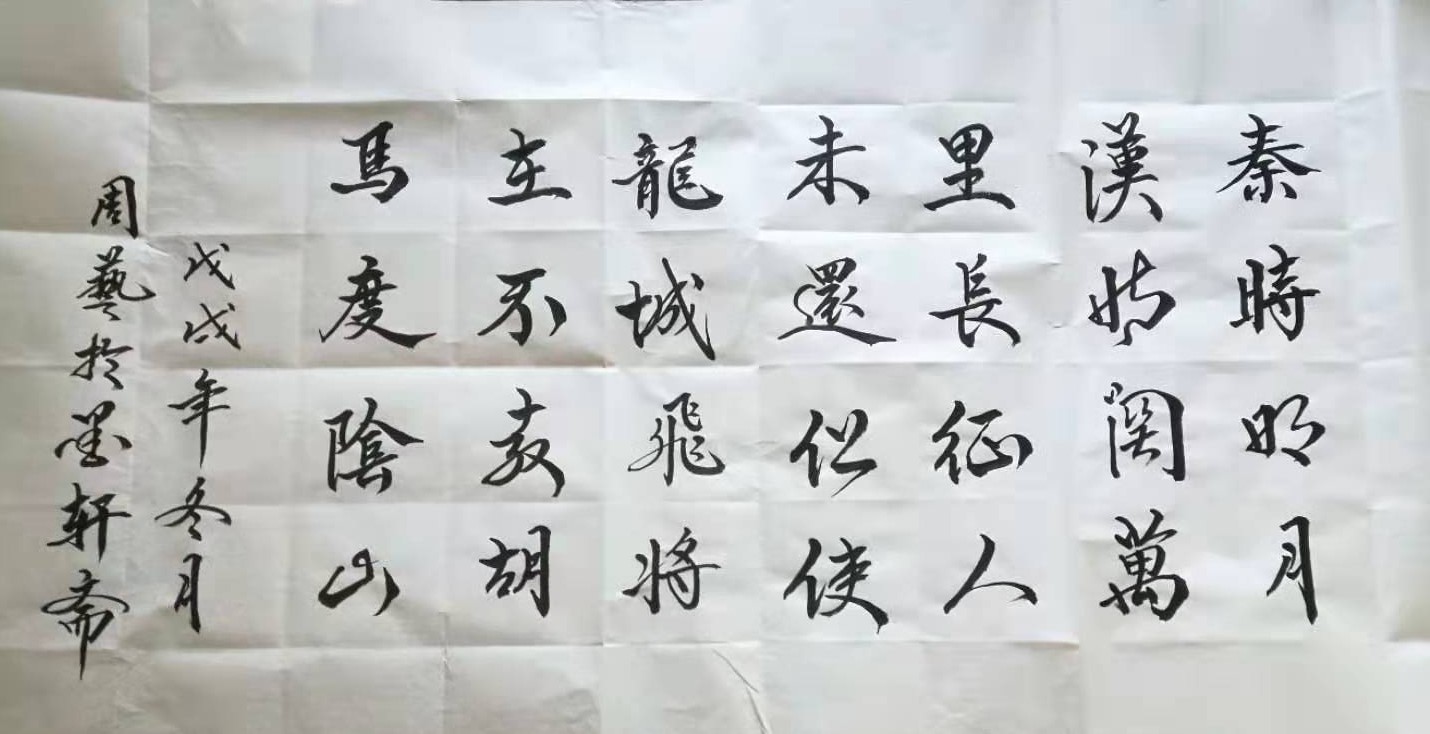 秦時明月
漢時関萬
里長征人
未還但使
龍城飛將
在不教胡
馬度陰山
戊戌年冬月
周藝於墨軒斋